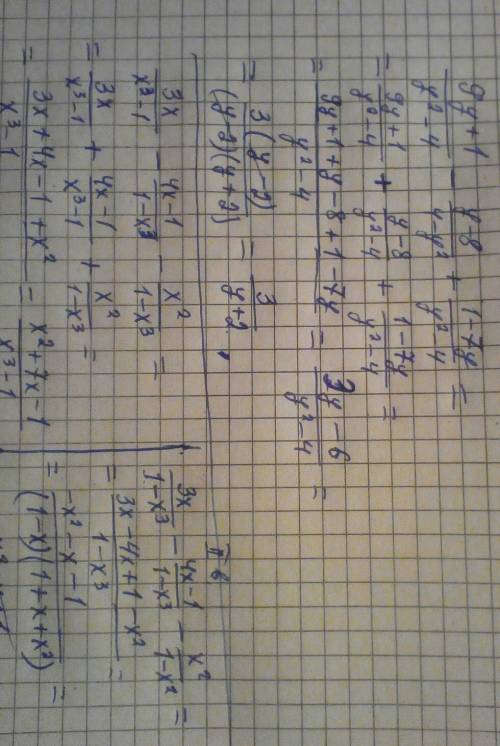 (9y+1)/(y²-4) - (y-8)/(4-y²) + (1-7y)/(y²-4) =
= (9y+1)/(y²-4) + (y-8)/(y²-4) + (1-7y)/(y²-4) =
= (9y+1+y-8+1-7y)/(y²-4) = (3y-6)/(y²-4) =
= 3(y-2)/((y-2)(y+2)) = 3/(y+2).
3x/(x³-1) - (4x-1)/(1-x³) - x²/(1-x³) =
= 3x/(x³-1) + (4x-1)/(x³-1) + x²/(1-x³) =
= (3x+4x-1+x²)/(x³-1) = (x²+7x-1)/(x³-1)
3x/(1-x³) - (4x-1)/(1-x³) - x²/(1-x²) =
= (3x-4x+1-x²)/(1-x³) =
= (-x²-x-1)/((1-x)(1+x+x²)) =